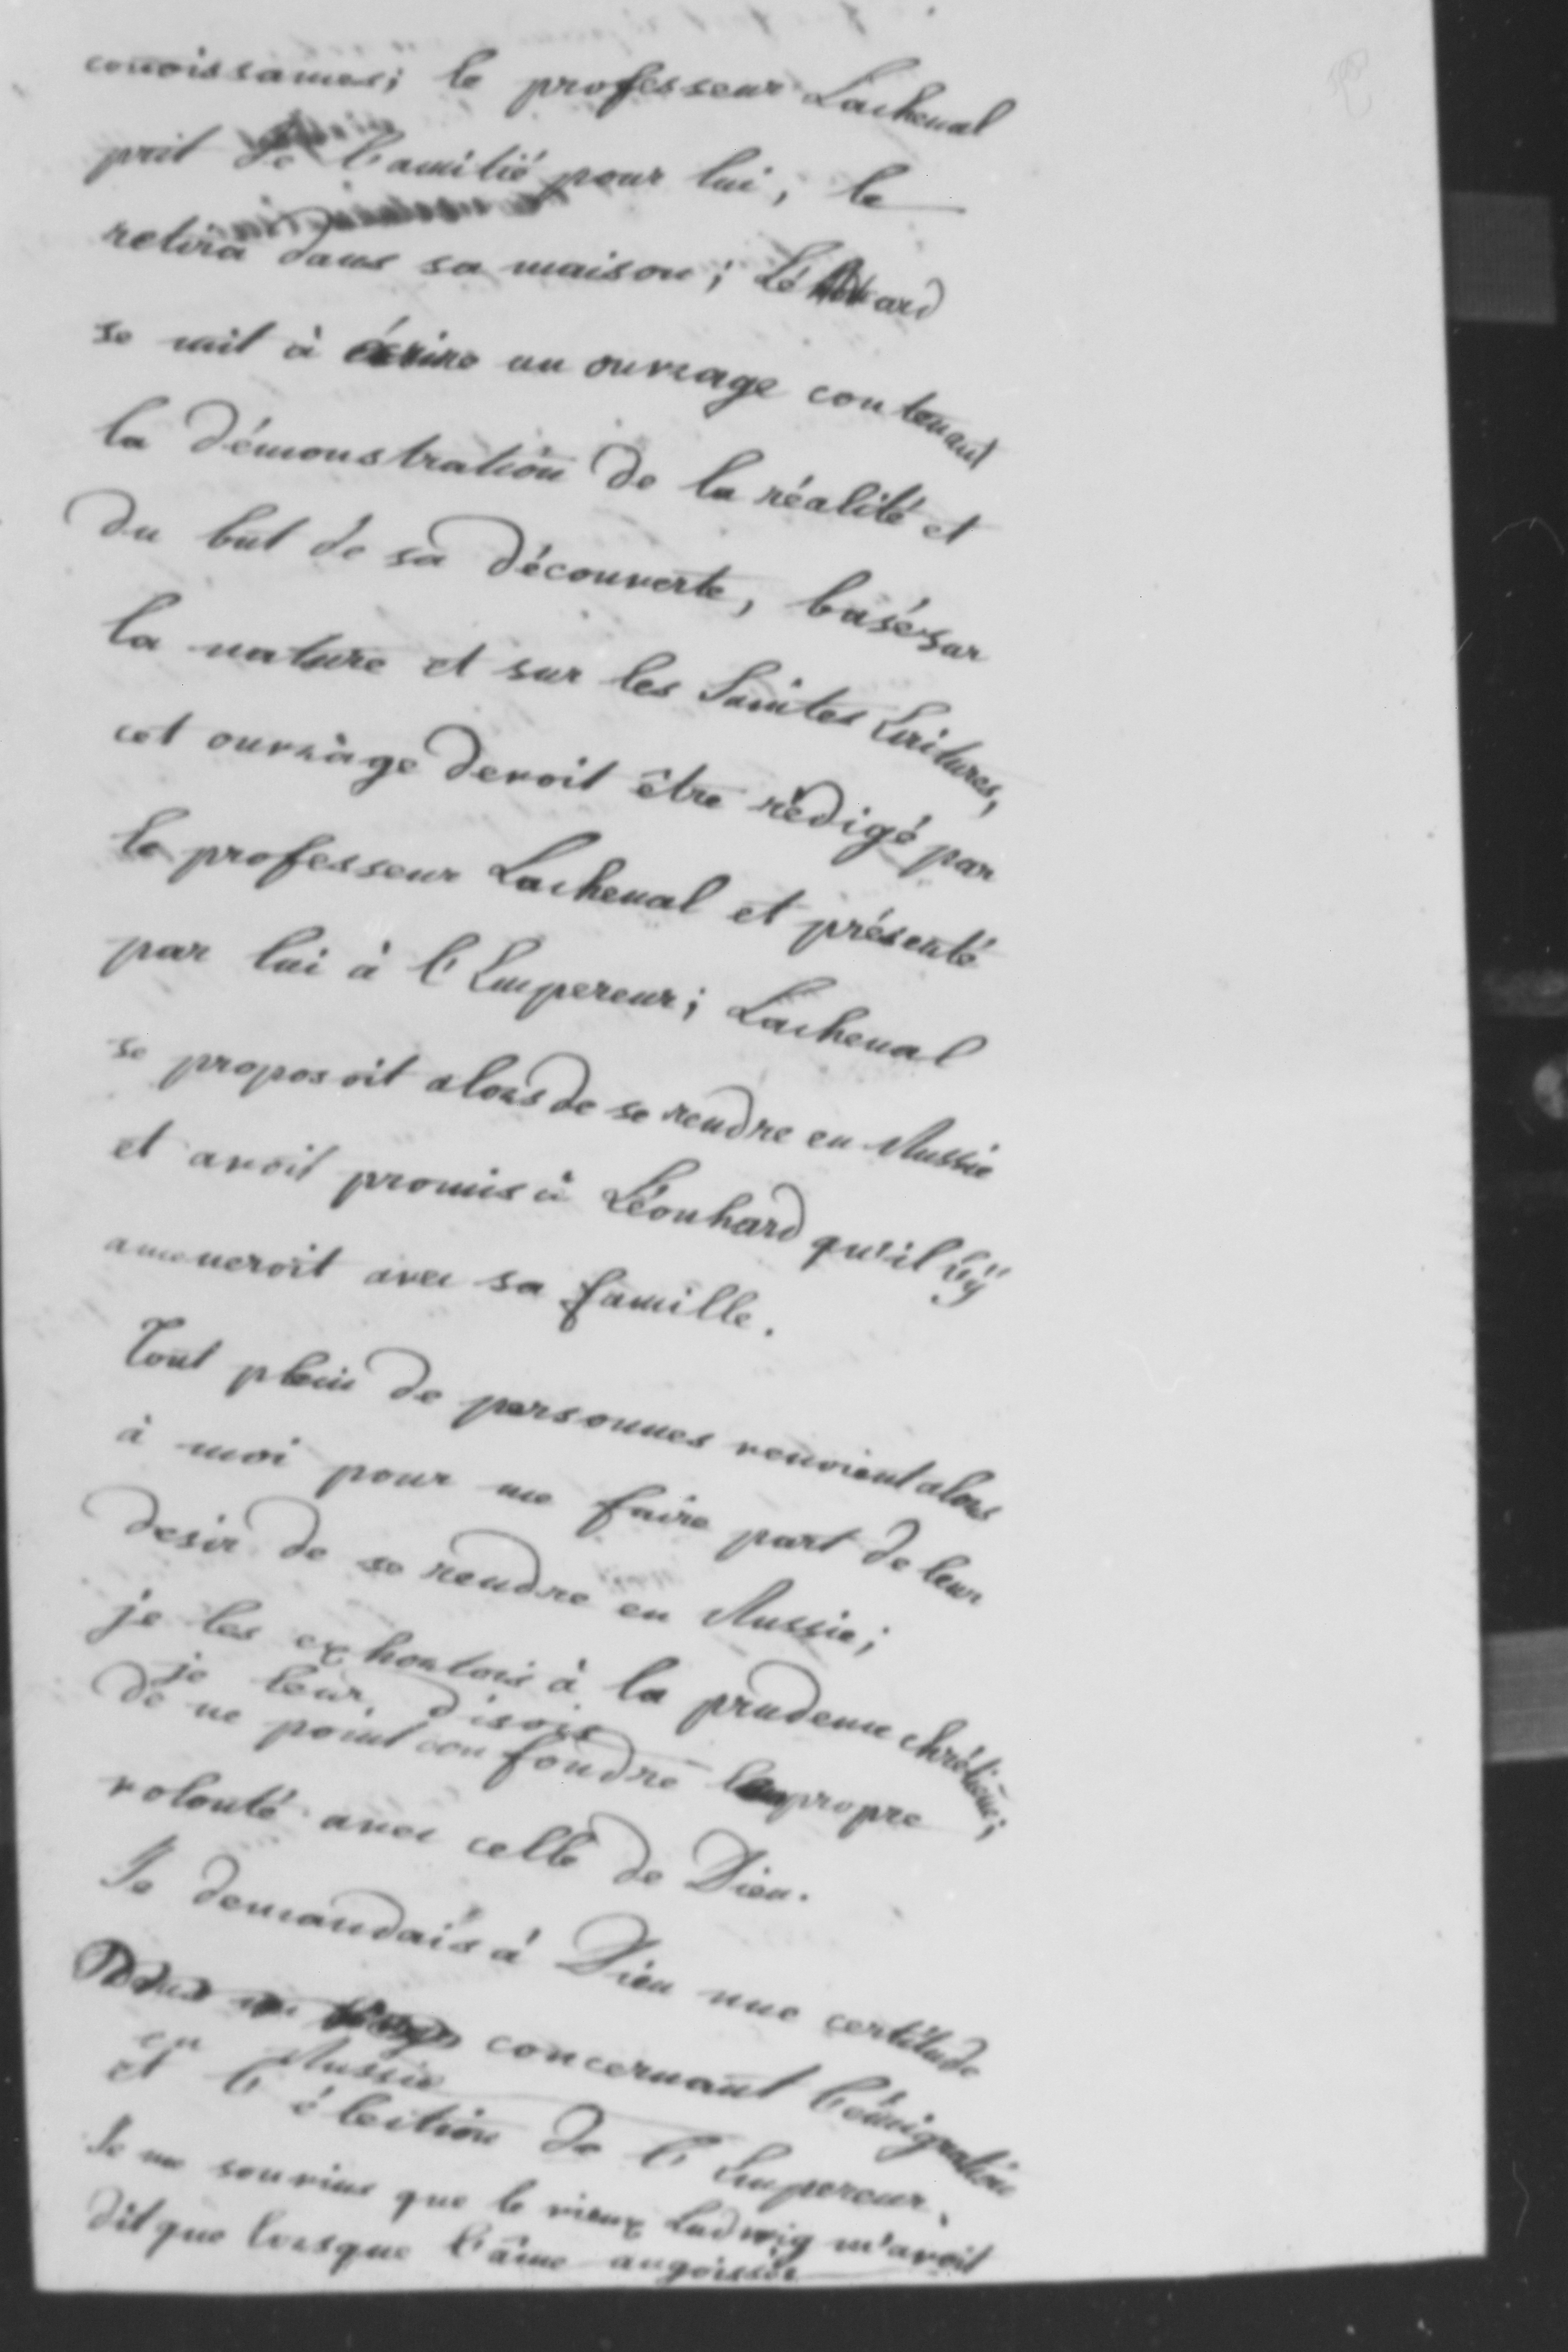 connoissances; le professeur Lachenal
prit de l'amitié pour lui, le
retira dans sa maison; Léonhard
se mit à écrire un ouvrage contenant
la démonstration de la réalité et
du but de sa découverte, basé sur
la nature et sur les Saintes Ecritures,
cet ouvrage devoit être rédigé par
le professeur Lachenal et présenté
par lui à l'Empereur; Lachenal
se proposoit alors de se rendre en Russie
et avoit promis à Léonhard qu'il l'y
ameneroit avec sa famille.
Tout plein de personnes venoient alors
à moi pour me faire part de leur
desir de se rendre en Russie;
je les exhortois à la prudence chrétienne;
je leur disois
de ne point confondre leur propre
volonté avec celle de Dieu.
Je demandais à Dieu une certitude
concernant l'émigration
en Russie
et l'élection de l'Empereur.
Je me souvins que le vieux Ludwig m'avoit
dit que lorsque l'âme angoissée